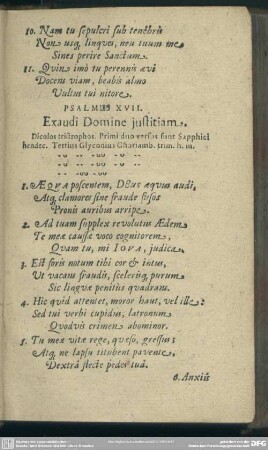 10. Nam tu sepulcri sub tenebris
Non usq, linques, neu tuum me
Sines perire Sanctum.
11. Quin imò tu perennis ævi
Docens viam, beabis almo
Vultus tui nitore.
PSALMUS XVII.
Exaudi Domine justitiam.
Dicolos tristrophos. Primi duo versus sunt Sapphici
hendec. Tertius Glyconius Choriamb. trim.
1. ÆQVA poscentem, DEus æquus audi,
Atq, clamores sine fraude fusos
Pronis auribus arripe.
2. Ad tuam supplex revolutus Ædem
Te meæ caussæ voco cognitorem,
Quam tu, mi IOVA, judica.
3. Est foris notum tibi cor & intus,
Ut vacans fraudis, scelerisq, purum
Sic linguæ penitus quadrans.
4. Hic quid attentet, moror haut, vel ille:
Sed tui verbi cupidus, latronum
Quodvis crimen abominor.
5. Tu meæ vitæ rege, quæso, gressus:
Atq, ne lapsu titubent pavente,
Dextrâ flecte pedes tuâ.
6. Anxiis